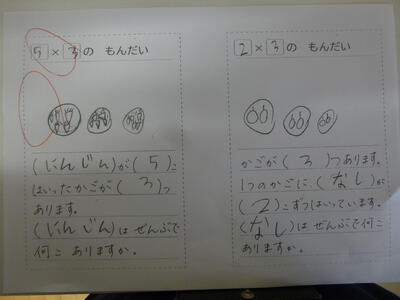 5×3の もんだい
(にんじん)が(5)こ
はいったかごが(3)つ
あります。
(にんじん)はぜんぶで
何こ ありますか。
2×3の もんだい
かごが(3)つあります。
1つのかごに、(なし)が
(2)こずつはいっています。
(なし)はぜんぶで何こ
ありますか。